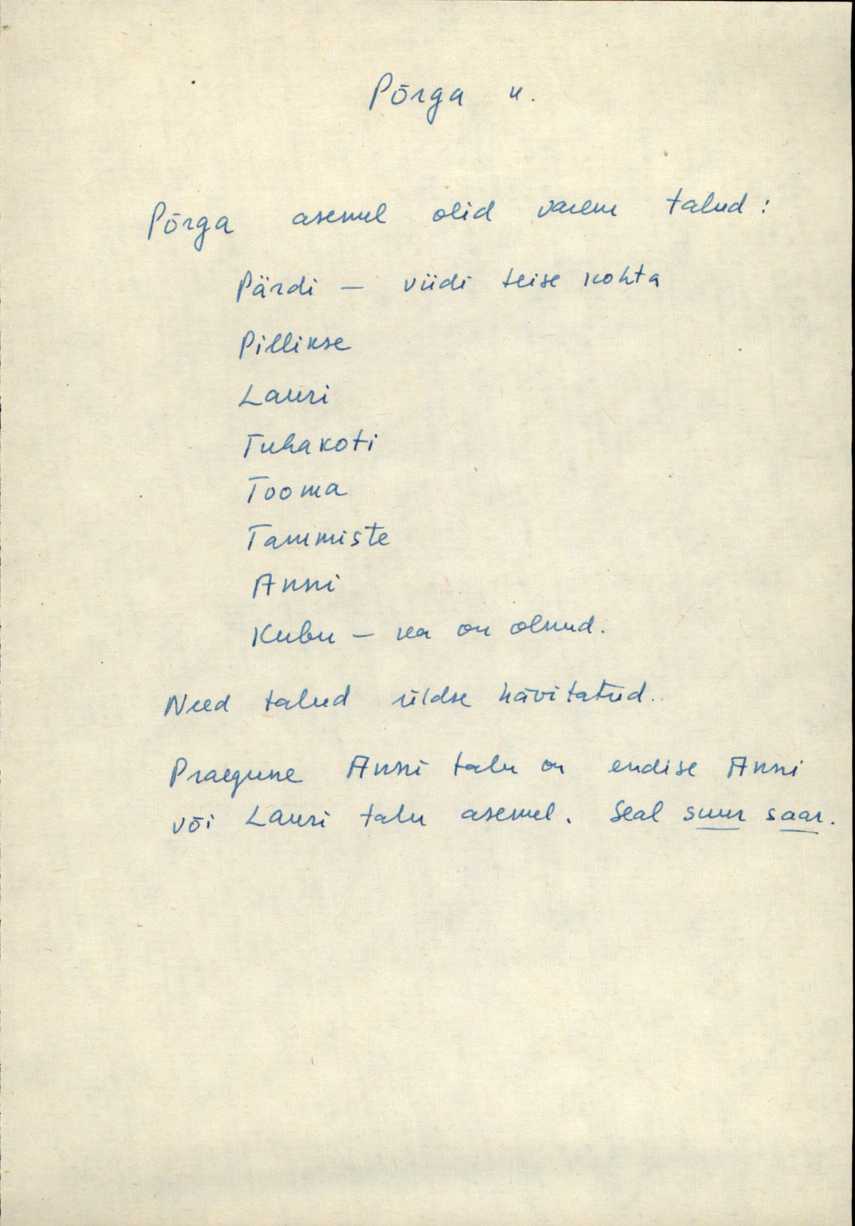 Põrga k.
Põrga asemel olid varem talud:
Pärdi — viidi teise kohta
Pillikse
Lauri
Tuhakoti
Tooma
Tammiste
Anni
Kubu — ka on olnud.
Need talud üldse hävitatud.
Praegune Anni talu on endise Anni
või Lauri talu asemel. Seal suur saar.